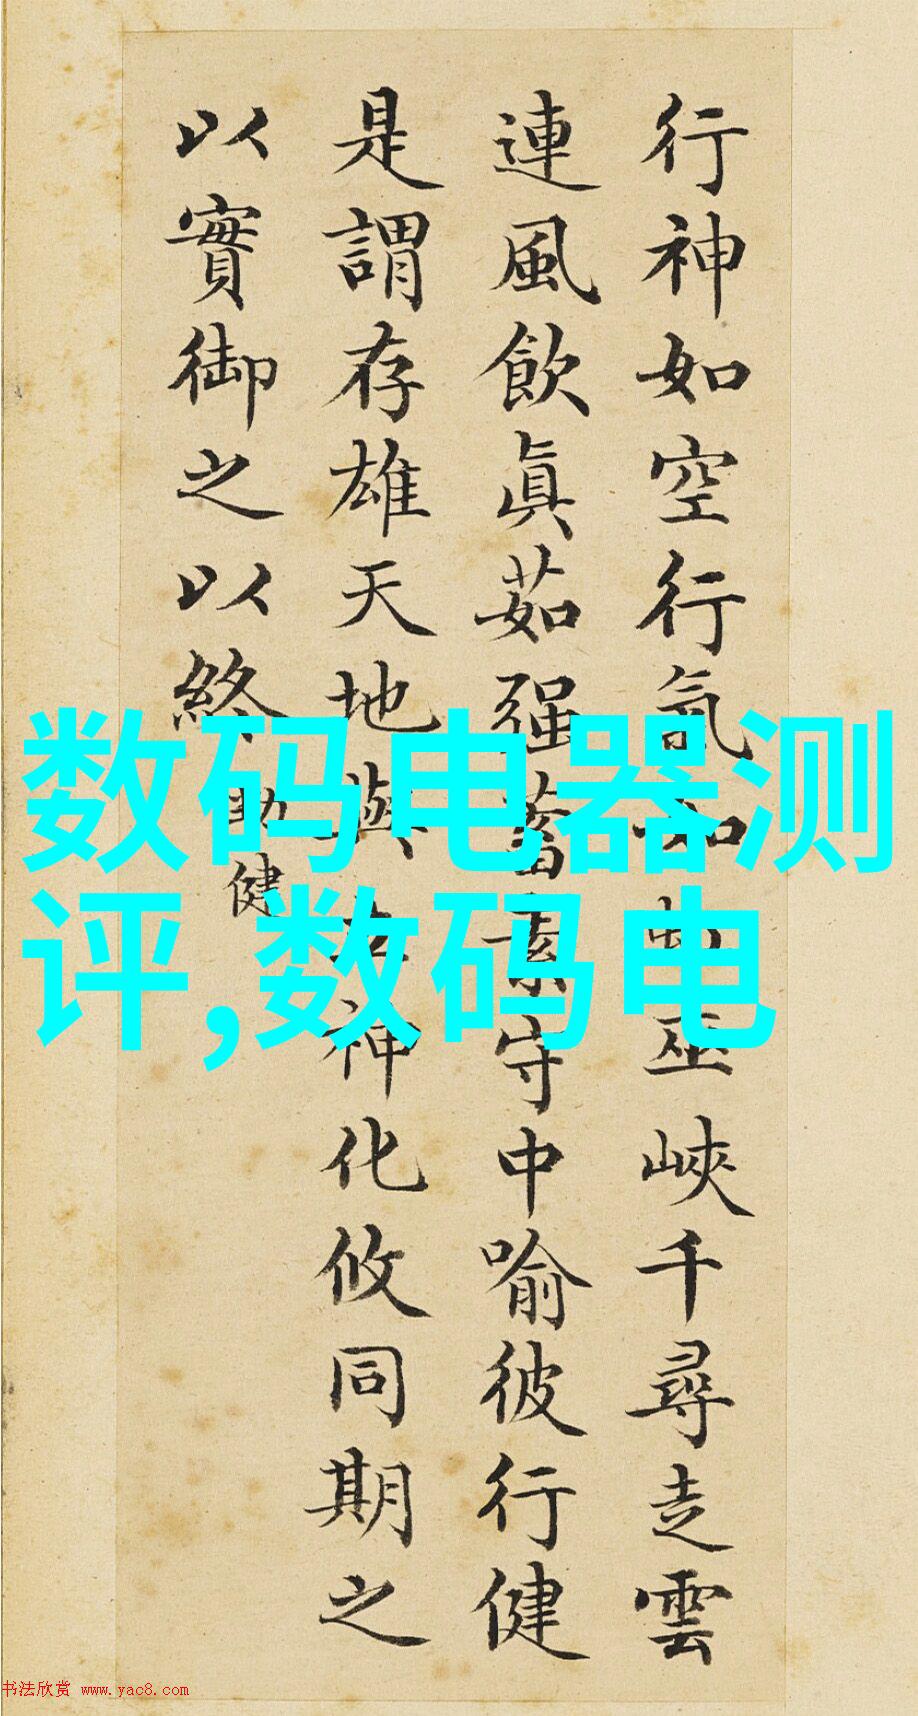 行神如空行氣如虹巫峽千尋走雲
連風飲眞茹强蓄素守中喻彼行健
是謂存雄天地與立神化攸同期之
以實御之以終
勁健
数码电器测
评,数码电
书法欣赏 www.yac8.com